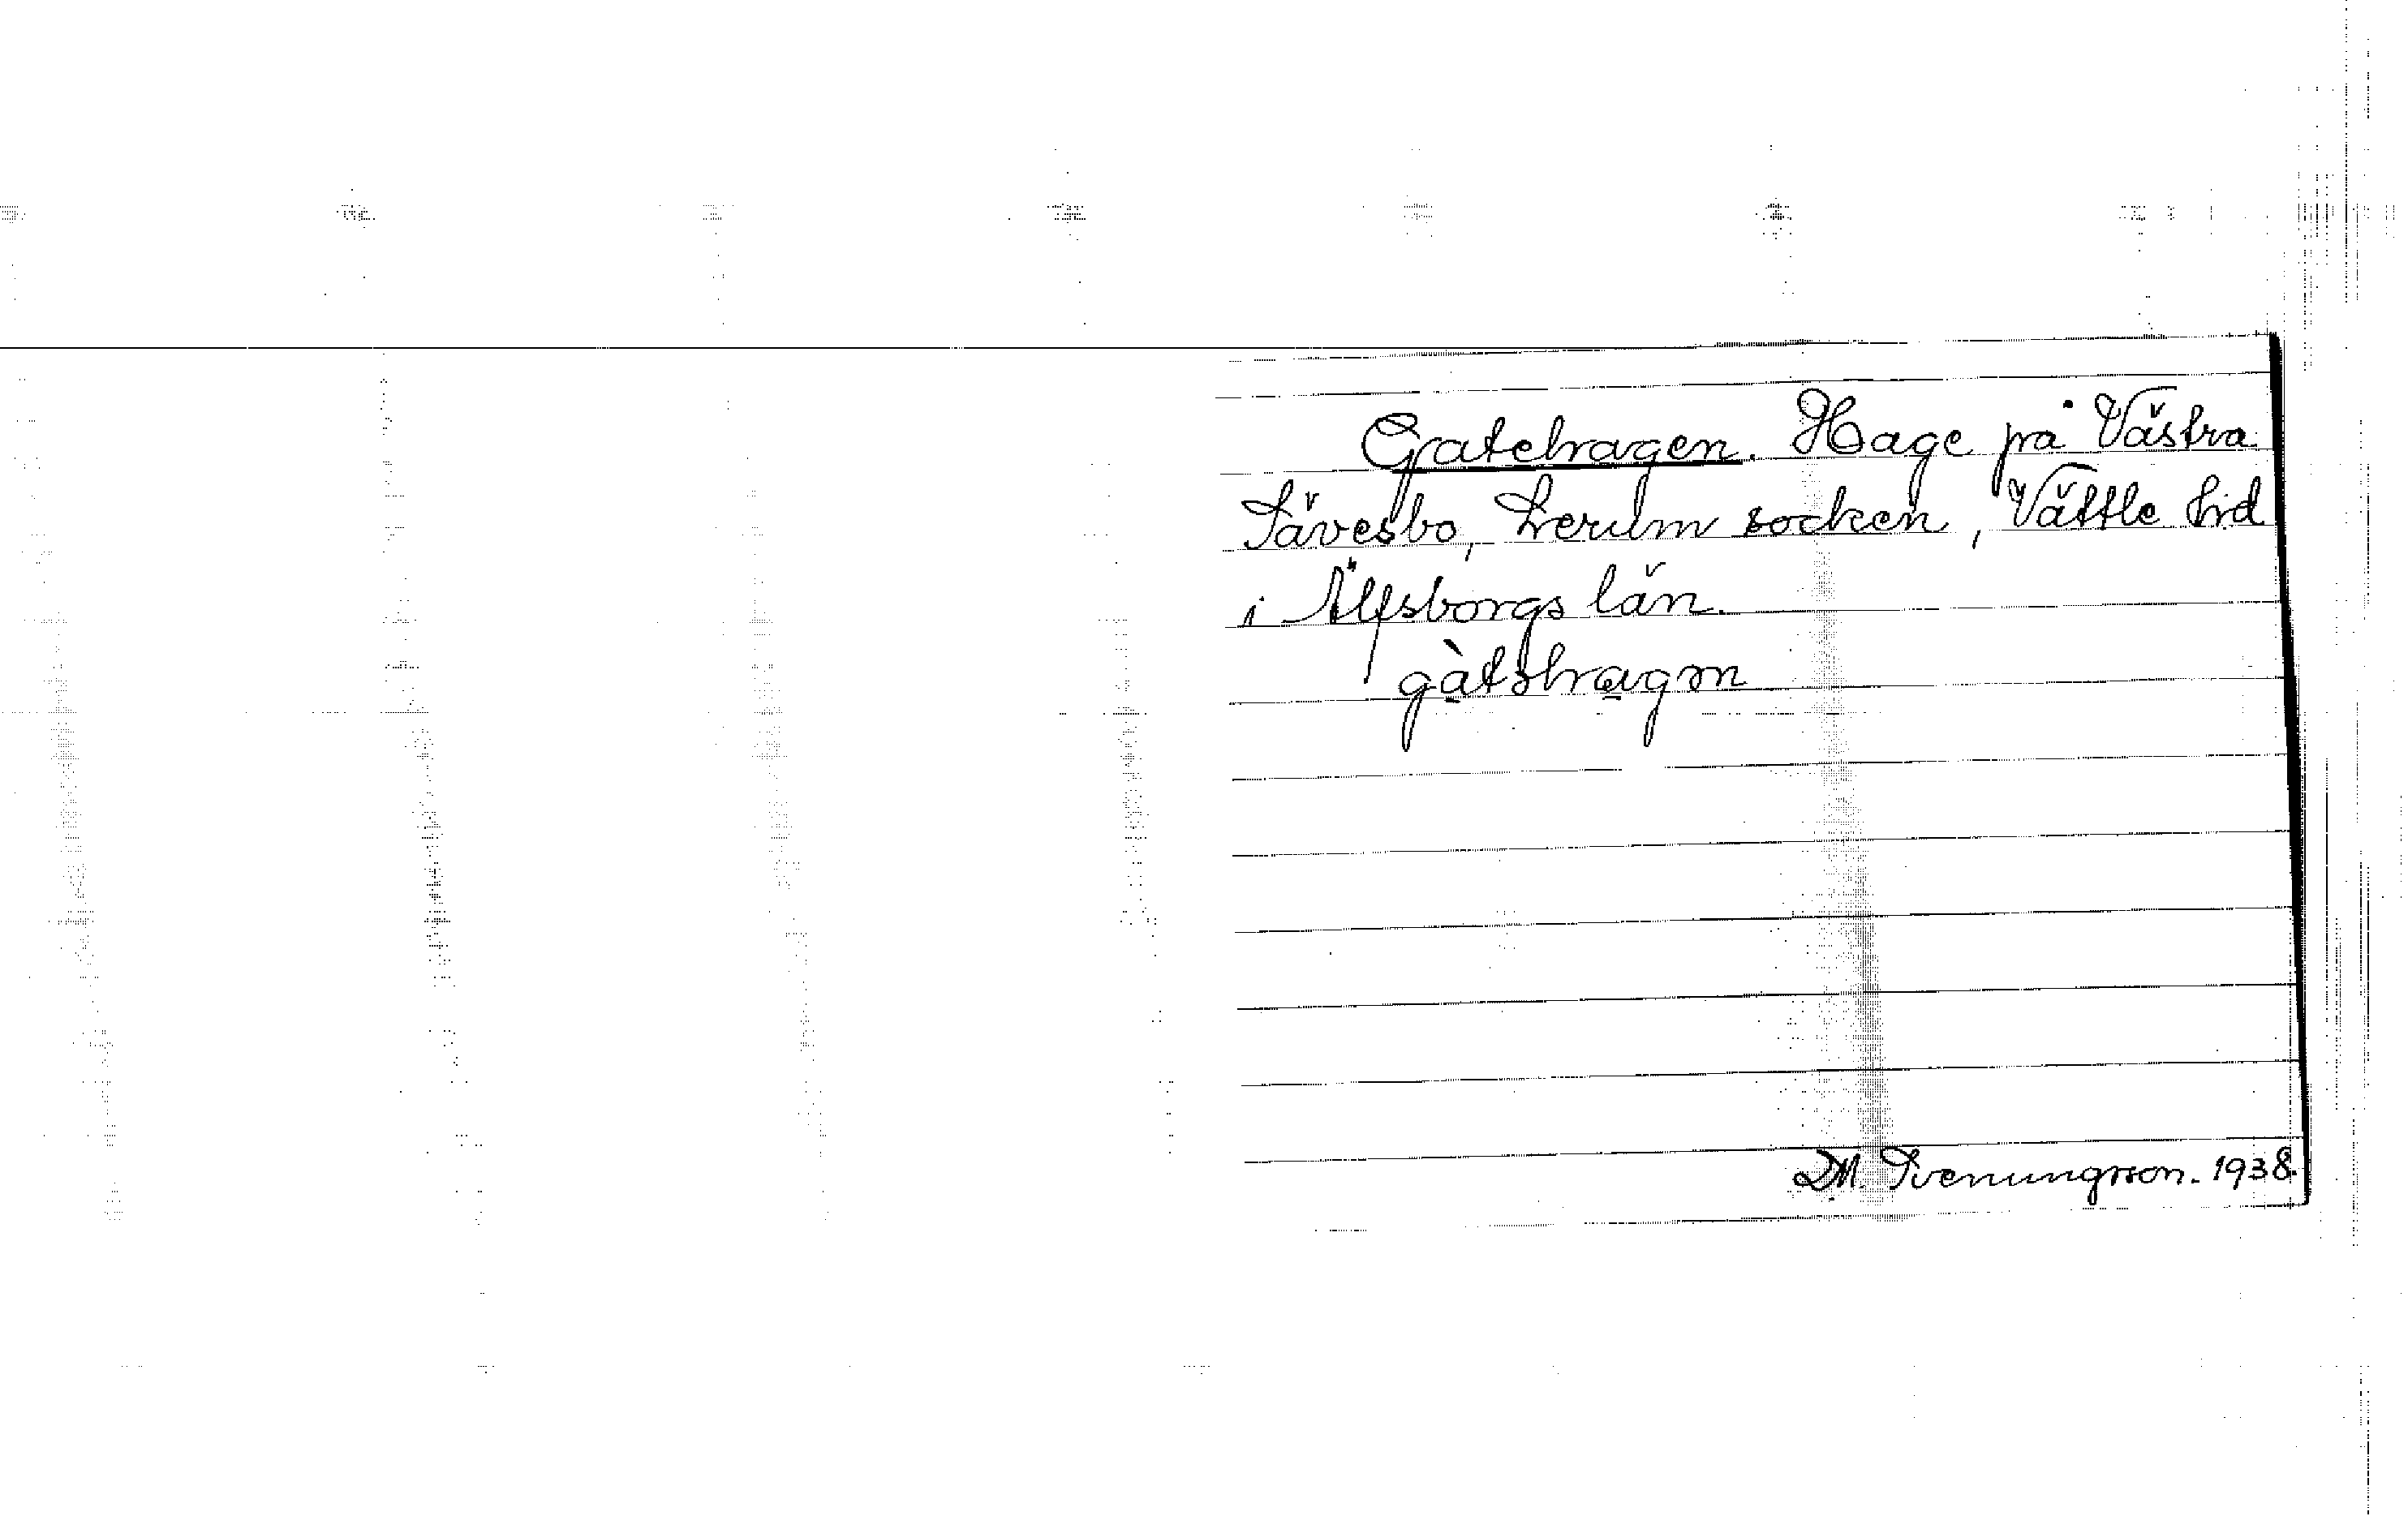 Gatehagen. Hage på Västra
Sävesbo, Lerum socken, Vättle hd
i Älfsborgs län.
gàtəhagən
D.M. Svenungsson. 1938.